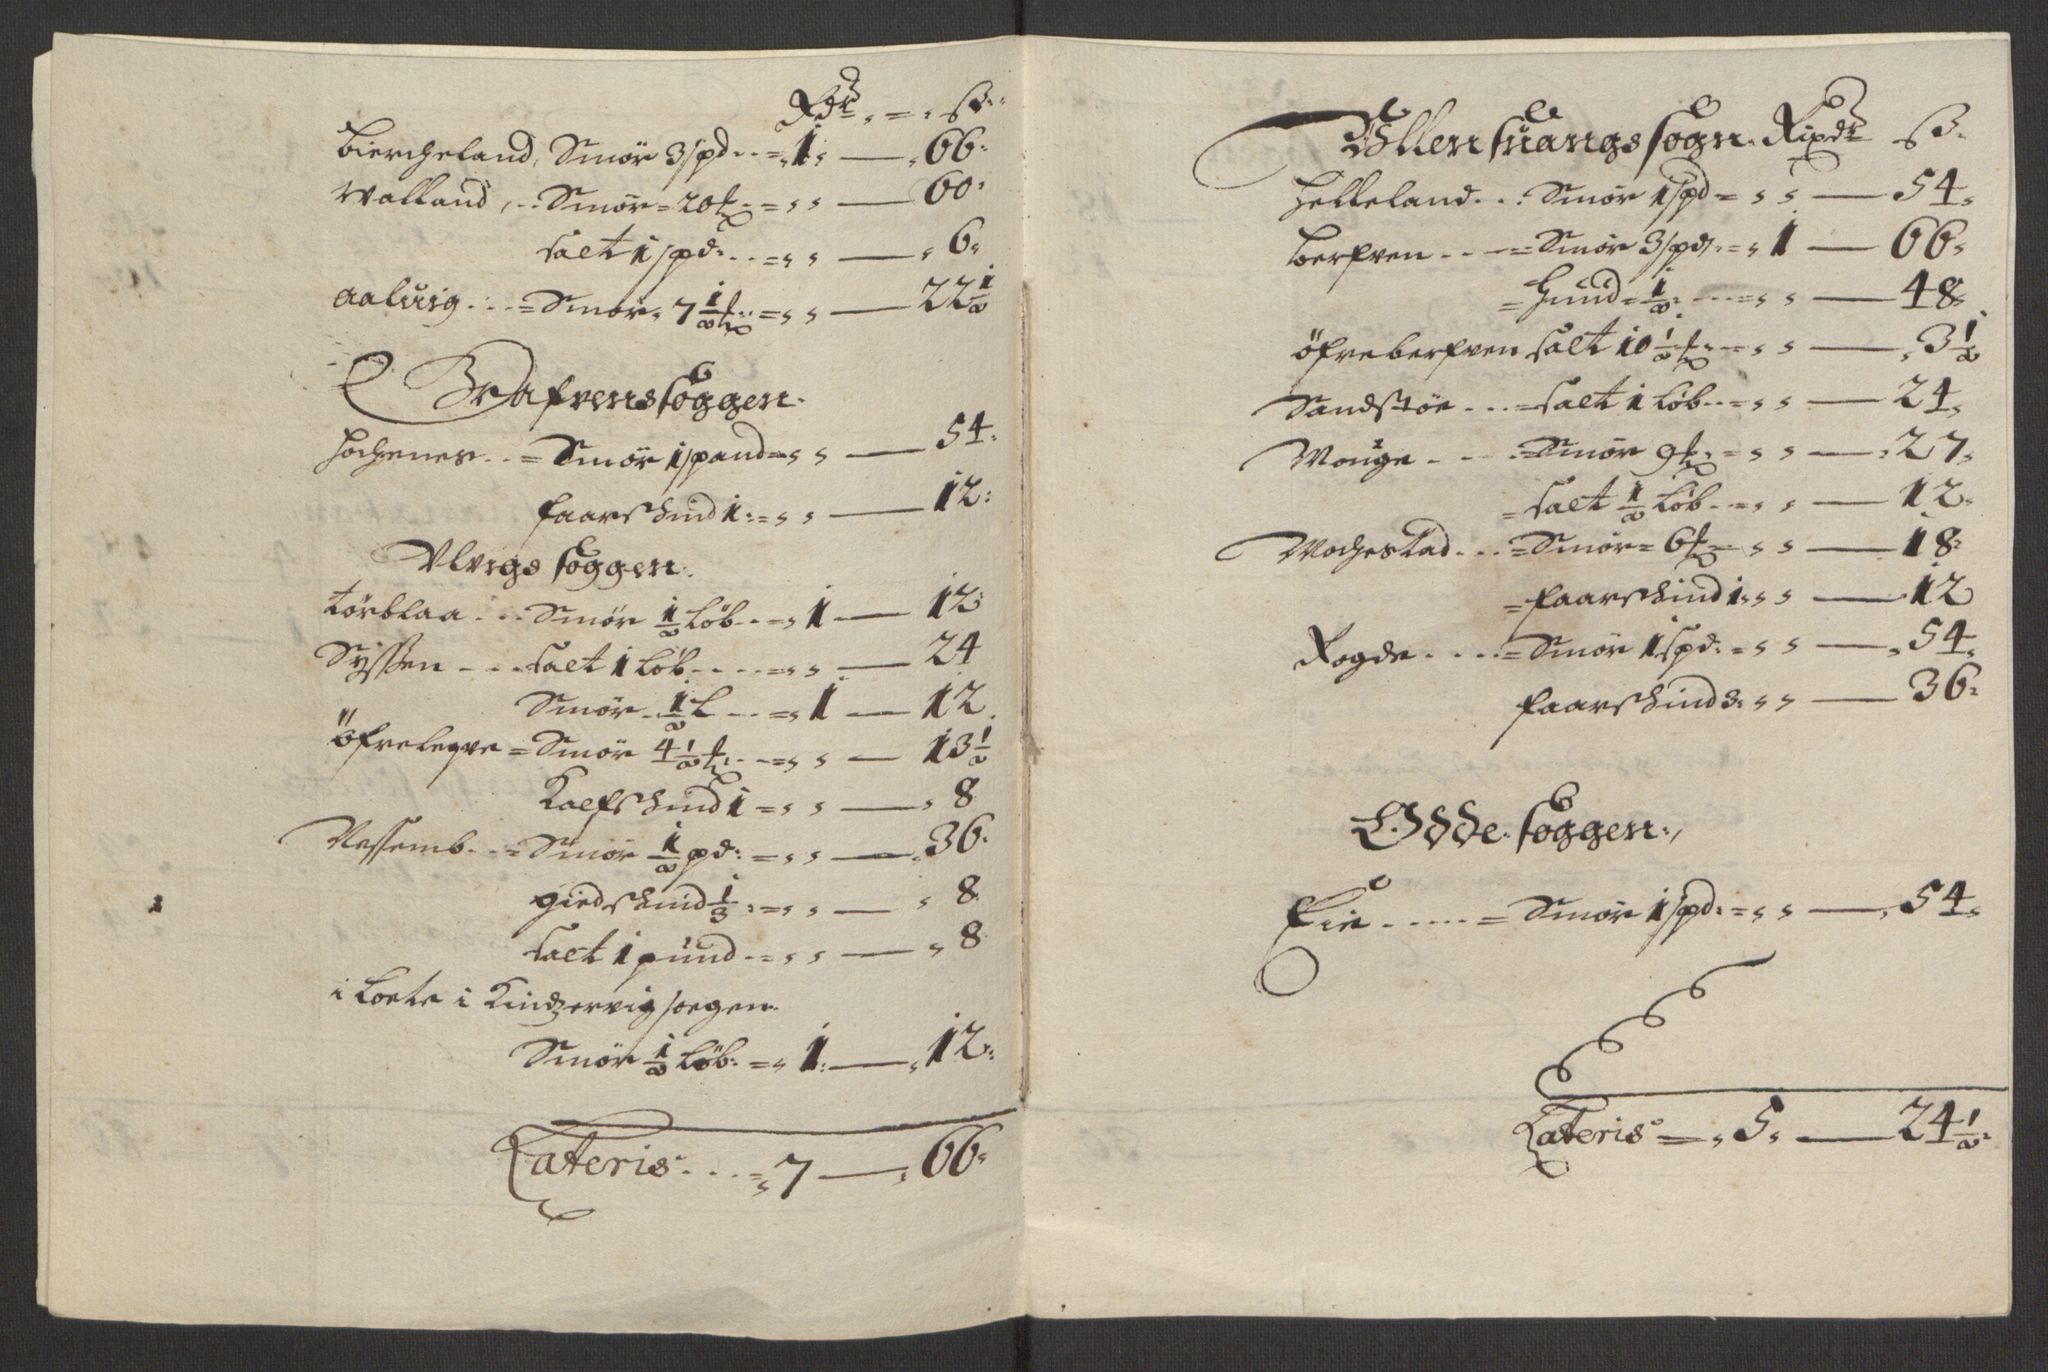 Rdr ß
Biercheland, Smör 3 spd 1 — 66
Walland, Smör 20 — 60
salt 1 spd — 6
Aaluig Smör 7 1/2 — 22 1/2
Grafvens soggen
Hochenes Smör 1 spand — 54
faarskind 1 — 12
Ulvigs soggen
Törblaa Smör 1/2 löb 1 — 12
Syssen salt 1 Löb — 24
Smör 1/2 L 1 — 12
Öfrelegre Smör 4 1/2 — 13 1/2
Kalfskind 1 — 8
Nessemb Smör 1/2 pd — 36
giedskind 1/3 — 8
salt 1 pund — 8
i Loete i Kindzervig soegen
Smör 1/2 Löb 1 — 12
Lateris 7 — 66
Ullensuangs sogn Rixdr ß
Helleland Smör 1 spd — 54
Berfven Smör 3 spd 1 — 66
Hund 1/2 — 48
öfreberfven salt 10 1/2 — 3 1/2
Sandstöe salt 1 Löb — 24
Mouge Smör 9 — 27
salt 1/2 Löb — 12
Mochestad Smör 6 — 18
faarskind 1 — 12
Rogde Smör 1 spd — 54
faarskind 3 — 36
Odde soggen
Eie Smör 1 spd — 54
Lateris 5 — 24 1/2